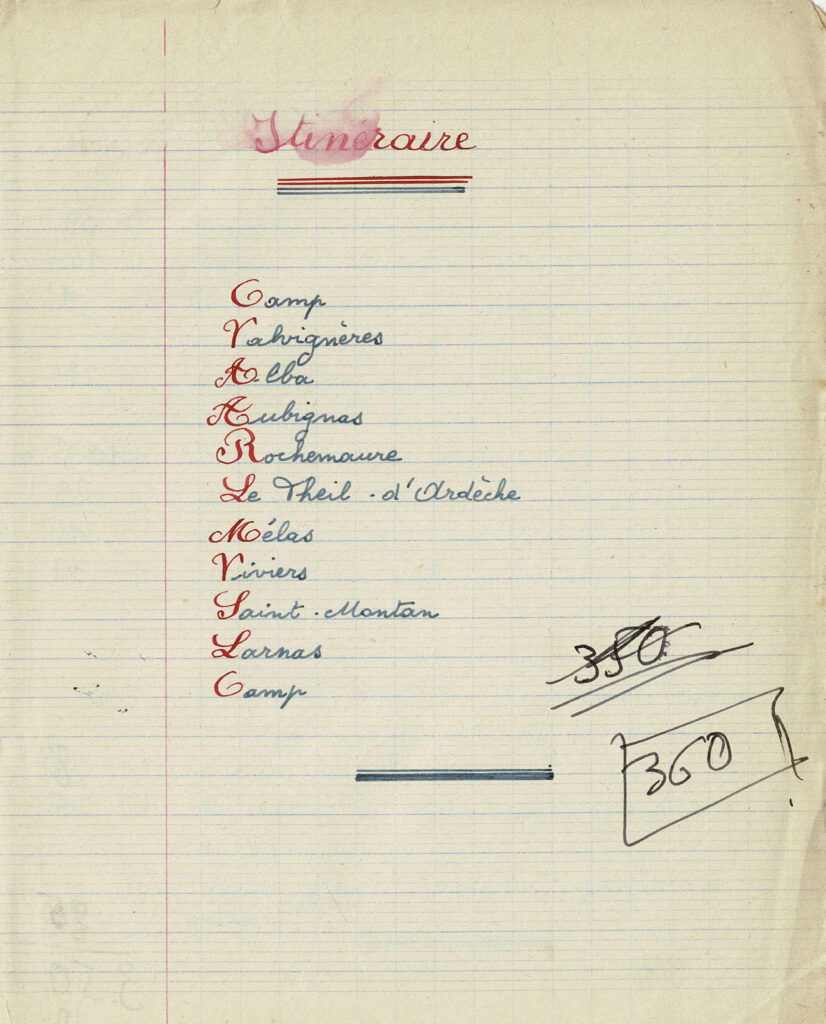 Itinéraire
Camp
Valvignères
Alba
Aubignas
Rochemaure
Le Theil-d'Ardèche
Mélas
Viviers
Saint-Montan
Larnas
Camp
350
360